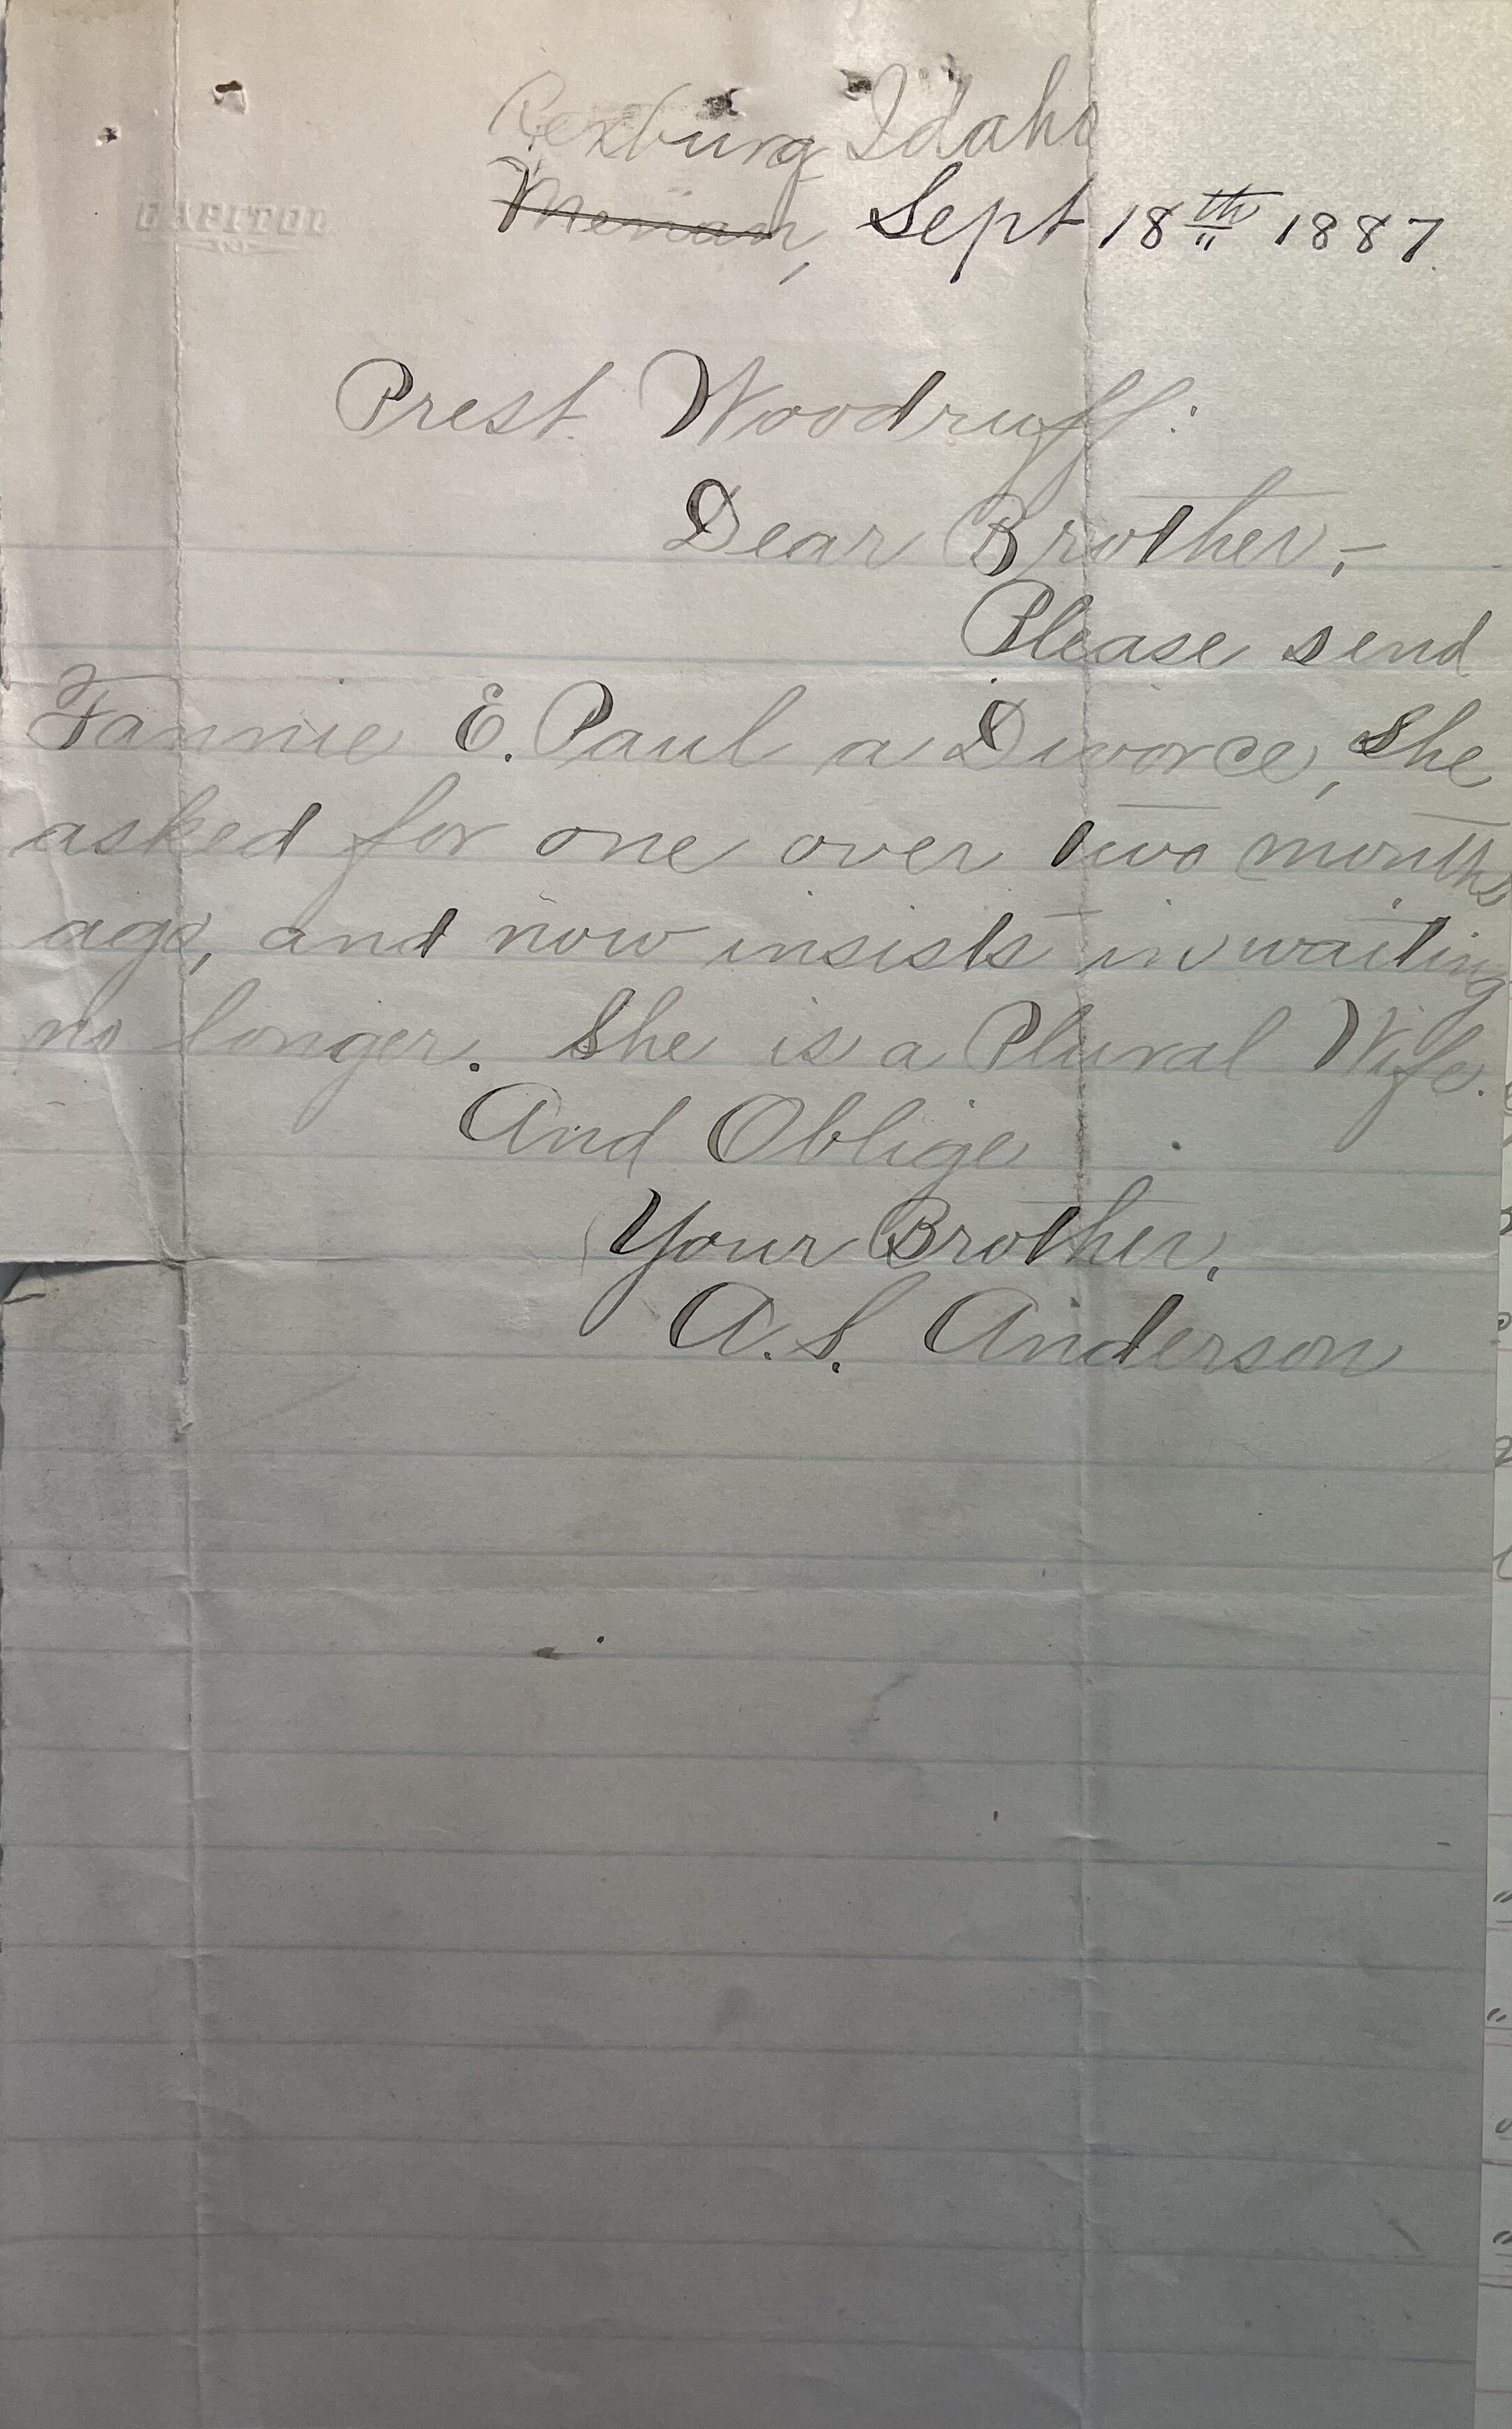 Rexburg Idaho
CAPITOL
Menan, Sept 18th 1887.
Prest. Woodruff:
Dear Brother,-
Please send
Fannie E. Paul a Divorce, She
asked for one over two months
ago, and now insists in waiting
no longer. She is a Plural Wife.
And Oblige
Your Brother,
A. S. Anderson